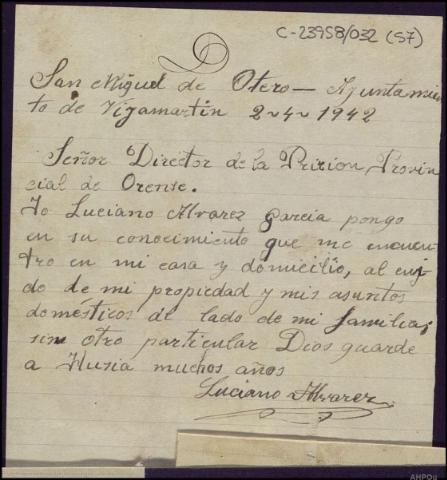 C-23958/032 (57)
San Miguel de Otero — Ajuntamien
to de Vijamartín 2~4~1942
Señor Director de la Pricion Provin
cial de Orense.
Yo Luciano Alvarez García pongo
en su conocimiento que me encuen-
tro en mi casa y domicilio, al cuj
do de mi propiedad y mis asuntos
domésticos al lado de mi familia;
sin otro particular Dios guarde
a Husia muchos años
Luciano Alvarez
AHPOu